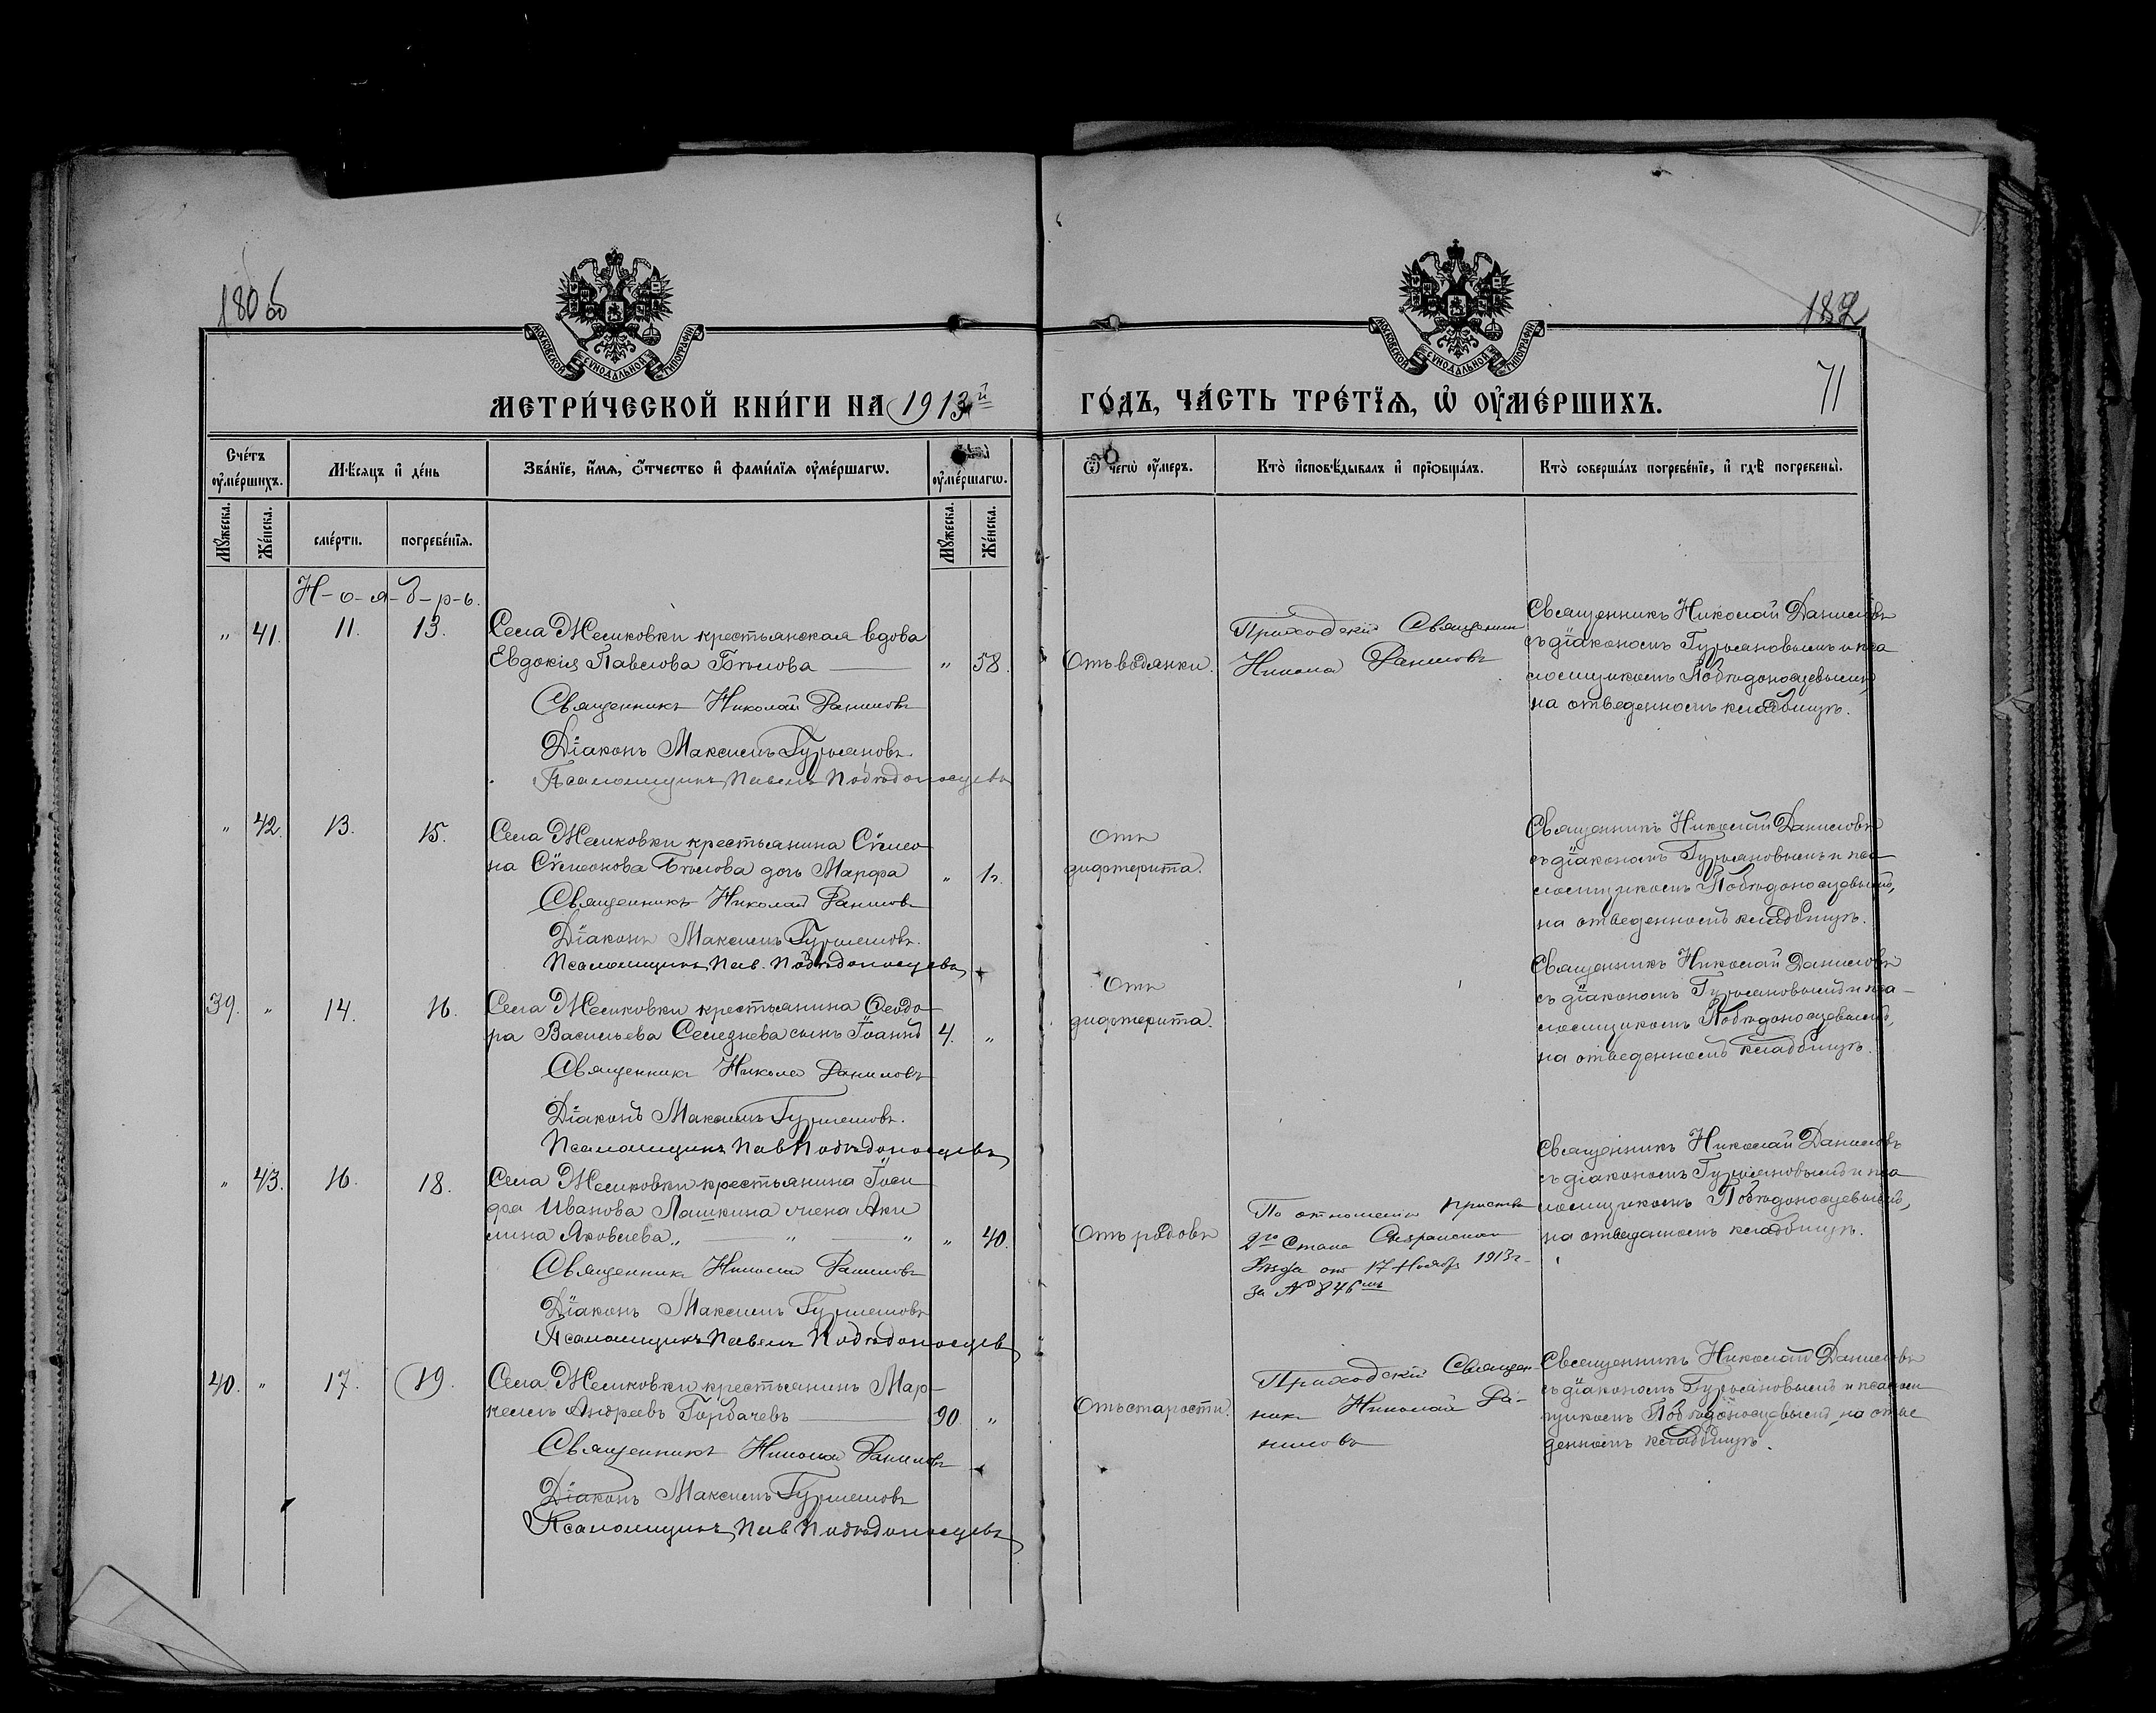 180 об
182
71
МОСКОВСКОЙ СѴНОДАЛЬНОЙ ТИПОГРАФІИ
МОСКОВСКОЙ СѴНОДАЛЬНОЙ ТИПОГРАФІИ
МЕТРИ́ЧЕСКОЙ КНИ́ГИ НА 1913й
ГО́ДЪ, ЧА́СТЬ ТРЕ́ТІѦ, Ѡ҆ ОУ҆МЕ́РШИХЪ.
Сче́тъ оу҆ме́ршихъ.
Мѣ́сяцъ и҆ де́нь
Зва́нїе, и҆́мѧ, ѻ҆́тчество и҆ фами́лїѧ оу҆ме́ршагѡ.
оу҆ме́ршагѡ.
Ѿ чегѡ̀ оу҆́меръ.
Кто̀ и҆сповѣ́дывалъ и҆ прїѡбща́лъ.
Кто̀ соверша́лъ погребе́нїе, и҆ гдѣ̀ погребены̀.
Мꙋ́жеска.
Же́нска.
сме́рти.
погребе́нїѧ.
Мꙋ́жеска.
Же́нска.
Н-о-я-б-р-ь.
" 41. 11. 13.
Села Жемковки крестьянская вдова
Евдокія Павлова Бѣлова — " 58.
Священникъ Николай Даниловъ
Діаконъ Максимъ Гурьяновъ.
Псаломщикъ Павелъ Побѣдоносцевъ
Отъ водянки.
Приходскій Священник
Николай Даниловъ
Священникъ Николай Даниловъ
съ діакономъ Гурьяновымъ и пса
ломщикомъ Побѣдоносцевымъ,
на отведенномъ кладбищѣ.
" 42. 13. 15.
Села Жемковки крестьянина Сѵмео
на Сѵмеонова Бѣлова дочь Марѳа " 1г.
Священникъ Николай Даниловъ
Діаконъ Максимъ Гурьяновъ.
Псаломщикъ Пав. Побѣдоносцевъ
Отъ
дифтерита.
Священникъ Николай Даниловъ
съ діакономъ Гурьяновымъ и пса
ломщикомъ Побѣдоносцевымъ,
на отведенномъ кладбищѣ.
39. " 14. 16.
Села Жемковки крестьянина Ѳеодо
ра Васильева Селезнева сынъ Іоаннъ 4. "
Священникъ Николай Даниловъ
Діаконъ Максимъ Гурьяновъ.
Псаломщикъ Пав Побѣдоносцевъ
Отъ
дифтерита.
Священникъ Николай Даниловъ
съ діакономъ Гурьяновымъ и пса-
ломщикомъ Побѣдоносцевымъ,
на отведенномъ кладбищѣ.
" 43. 16. 18.
Села Жемковки крестьянина Іоси
фа Иванова Лашкина жена Аки
лина Яковлева " " " 40.
Священникъ Николай Даниловъ
Діаконъ Максимъ Гурьяновъ
Псаломщикъ Павелъ Побѣдоносцев
Отъ родовъ
По отношенію Пристава
2го Стана Сызранскаго
Уѣзда отъ 17 Ноября 1913 г.
за № 846мъ
Священникъ Николай Даниловъ
съ діакономъ Гурьяновымъ и пса
ломщикомъ Побѣдоносцевымъ,
на отведенномъ кладбищѣ.
40. " 17. 19.
Села Жемковки крестьянинъ Мар-
келлъ Андреевъ Горбачевъ — 90. "
Священникъ Николай Даниловъ
Діаконъ Максимъ Гурьяновъ
Псаломщикъ Пав Побѣдоносцевъ
Отъ старости.
Приходскій Священ-
никъ Николай Да-
ниловъ
Священникъ Николай Даниловъ
съ діакономъ Гурьяновымъ и псалом
щикомъ Побѣдоносцевымъ, на отве
денномъ кладбищѣ.